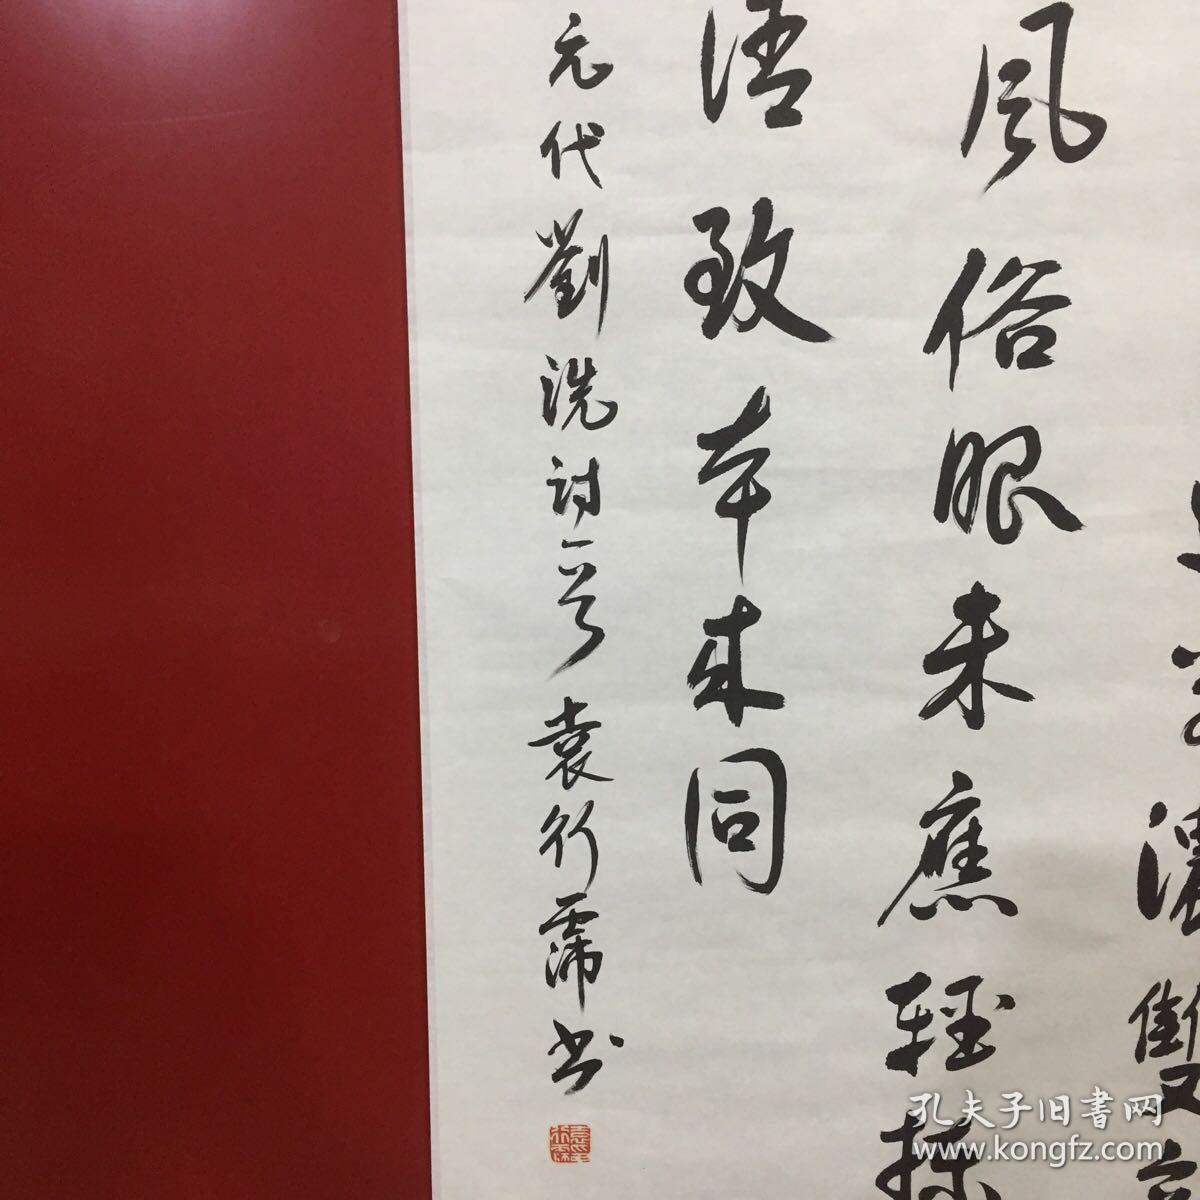 濃雙
風俗眼未應輕揀
清致本來同
元代劉詵詩一首 袁行霈书
孔夫子旧書网
www.kongfz.com